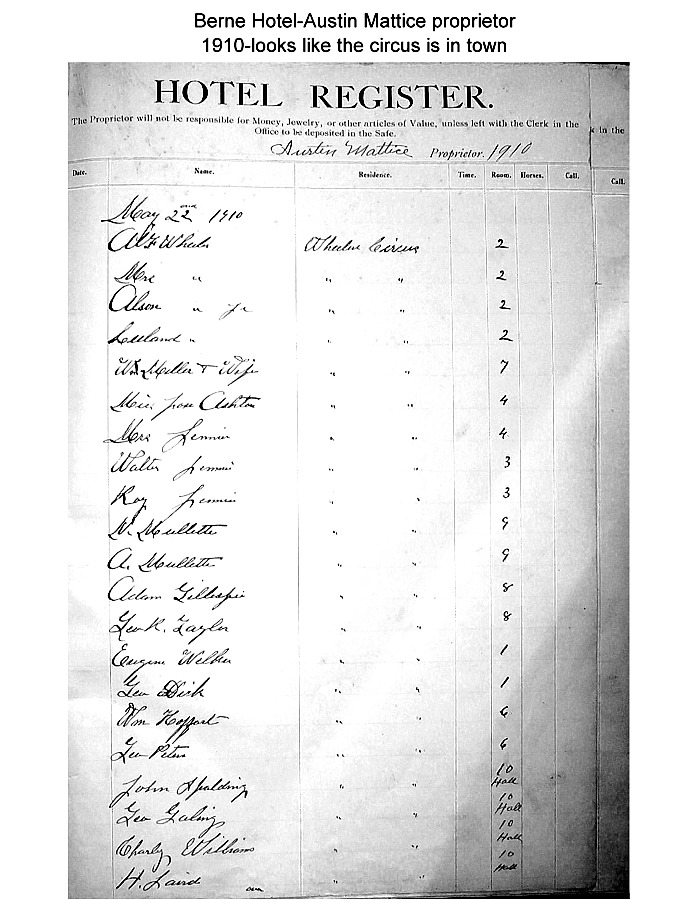 Berne Hotel-Austin Mattice proprietor
1910-looks like the circus is in town
HOTEL REGISTER.
The Proprietor will not be responsible for Money, Jewelry, or other articles of Value, unless left with the Clerk in the
Office to be deposited in the Safe.
k in the
Austin Mattice Proprietor. 1910
Date. Name. Residence. Time. Room. Horses. Call. Call.
May 22nd 1910
Al F Wheeler Wheeler Circus 2
Mrs " " " 2
Alson " Jr " " 2
" " " 2
Wm Miller + Wife " " 7
Ashton " " 4
Mrs " " 4
Walter " " 3
Roy " " 3
W. Mullette " " 9
A. Mullette " " 9
Adam Gillespie " " 8
Geo R. Taylor " " 8
Eugene " " 1
Geo Dick " " 1
Wm " " 6
Geo Peters " " 6
John Spalding " " 10 Hall
Geo " " 10 Hall
Charly Williams " " 10 Hall
H. Laird over " " 10 Hall